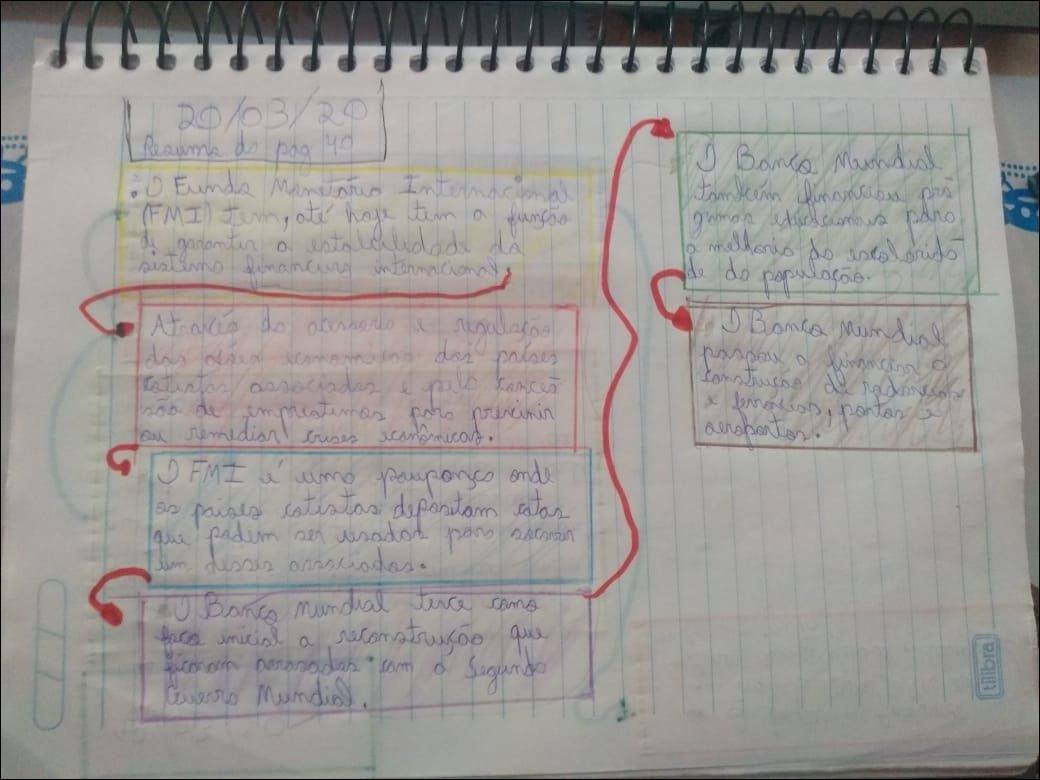 20/03/20
Resumo da pag 40
O Fundo Monetário Internacional
(FMI) tem, até hoje tem a função
de garantir a estabilidade da
sistema financeiro internacional,
Através da acessoria e regulação
das áreas economicas dos países
cotistas associados e pela conces
são de emprestimos para previnir
ou remediar crises econômicas.
O FMI é uma poupança onde
os países cotistas depositam cotas
que podem ser usados para socorrer
um desses associados.
O Banco Mundial teve como
foco inicial a reconstrução que
ficaram arrasadas com a Segunda
Guerra Mundial.
O Banco Mundial
também financiou pro
gamas educacionais para
a melhoria da escolarida
de da população.
O Banco Mundial
passou a financiar a
construção de rodovias
e ferrovias, portos e
aeroportos.
tilibra